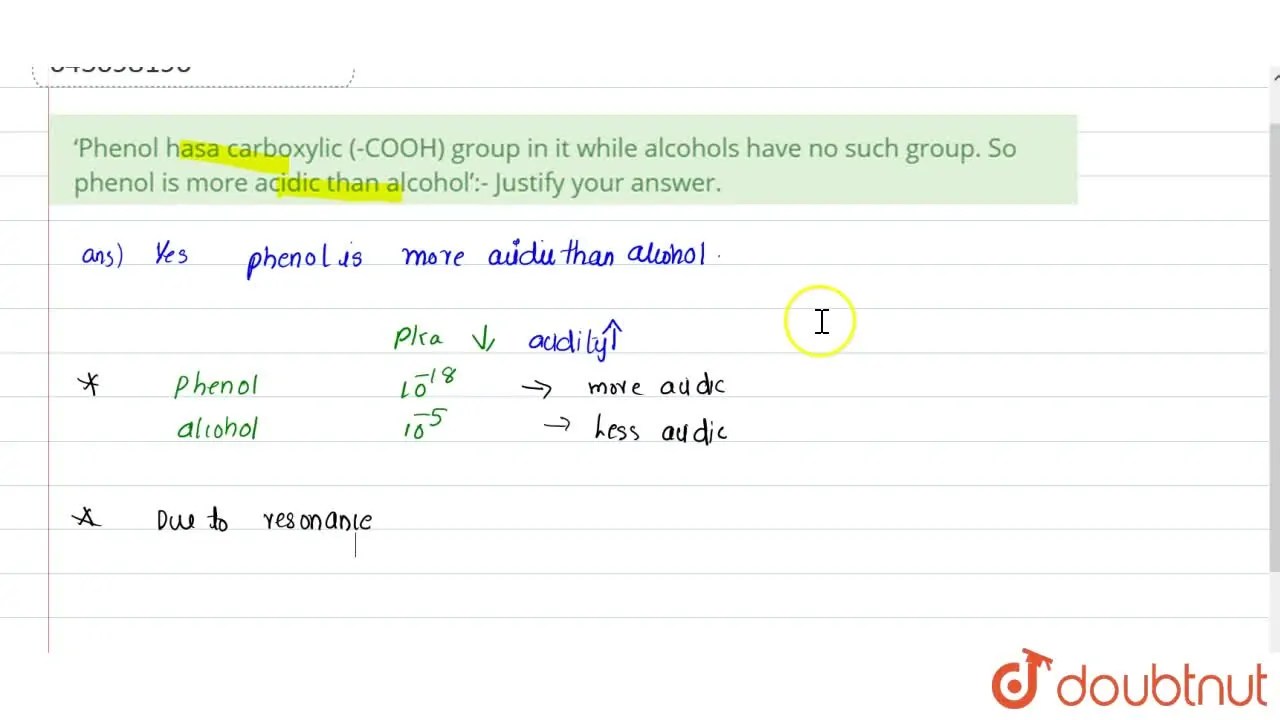 ‘Phenol hasa carboxylic (-COOH) group in it while alcohols have no such group. So
phenol is more acidic than alcohol’:- Justify your answer.
ans) Yes phenol is more acidic than alcohol.
Pka ↓ acidity↑
* Phenol 10⁻¹⁸ → more acidic
alcohol 10⁻⁵ → Less acidic
* Due to resonance
doubtnut